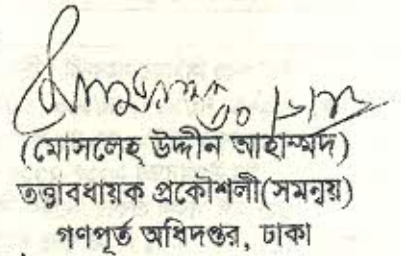 (মোসলেহ্ উদ্দীন আহাম্মদ)
তত্ত্বাবধায়ক প্রকৌশলী(সমন্বয়)
গণপূর্ত অধিদপ্তর, ঢাকা